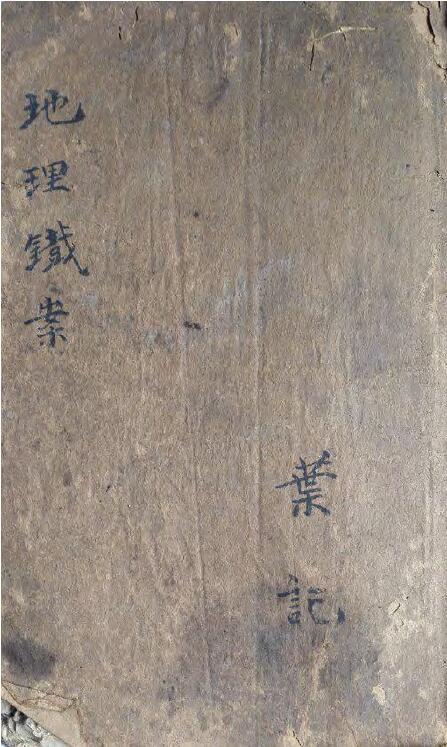 地理鐵案
葉記